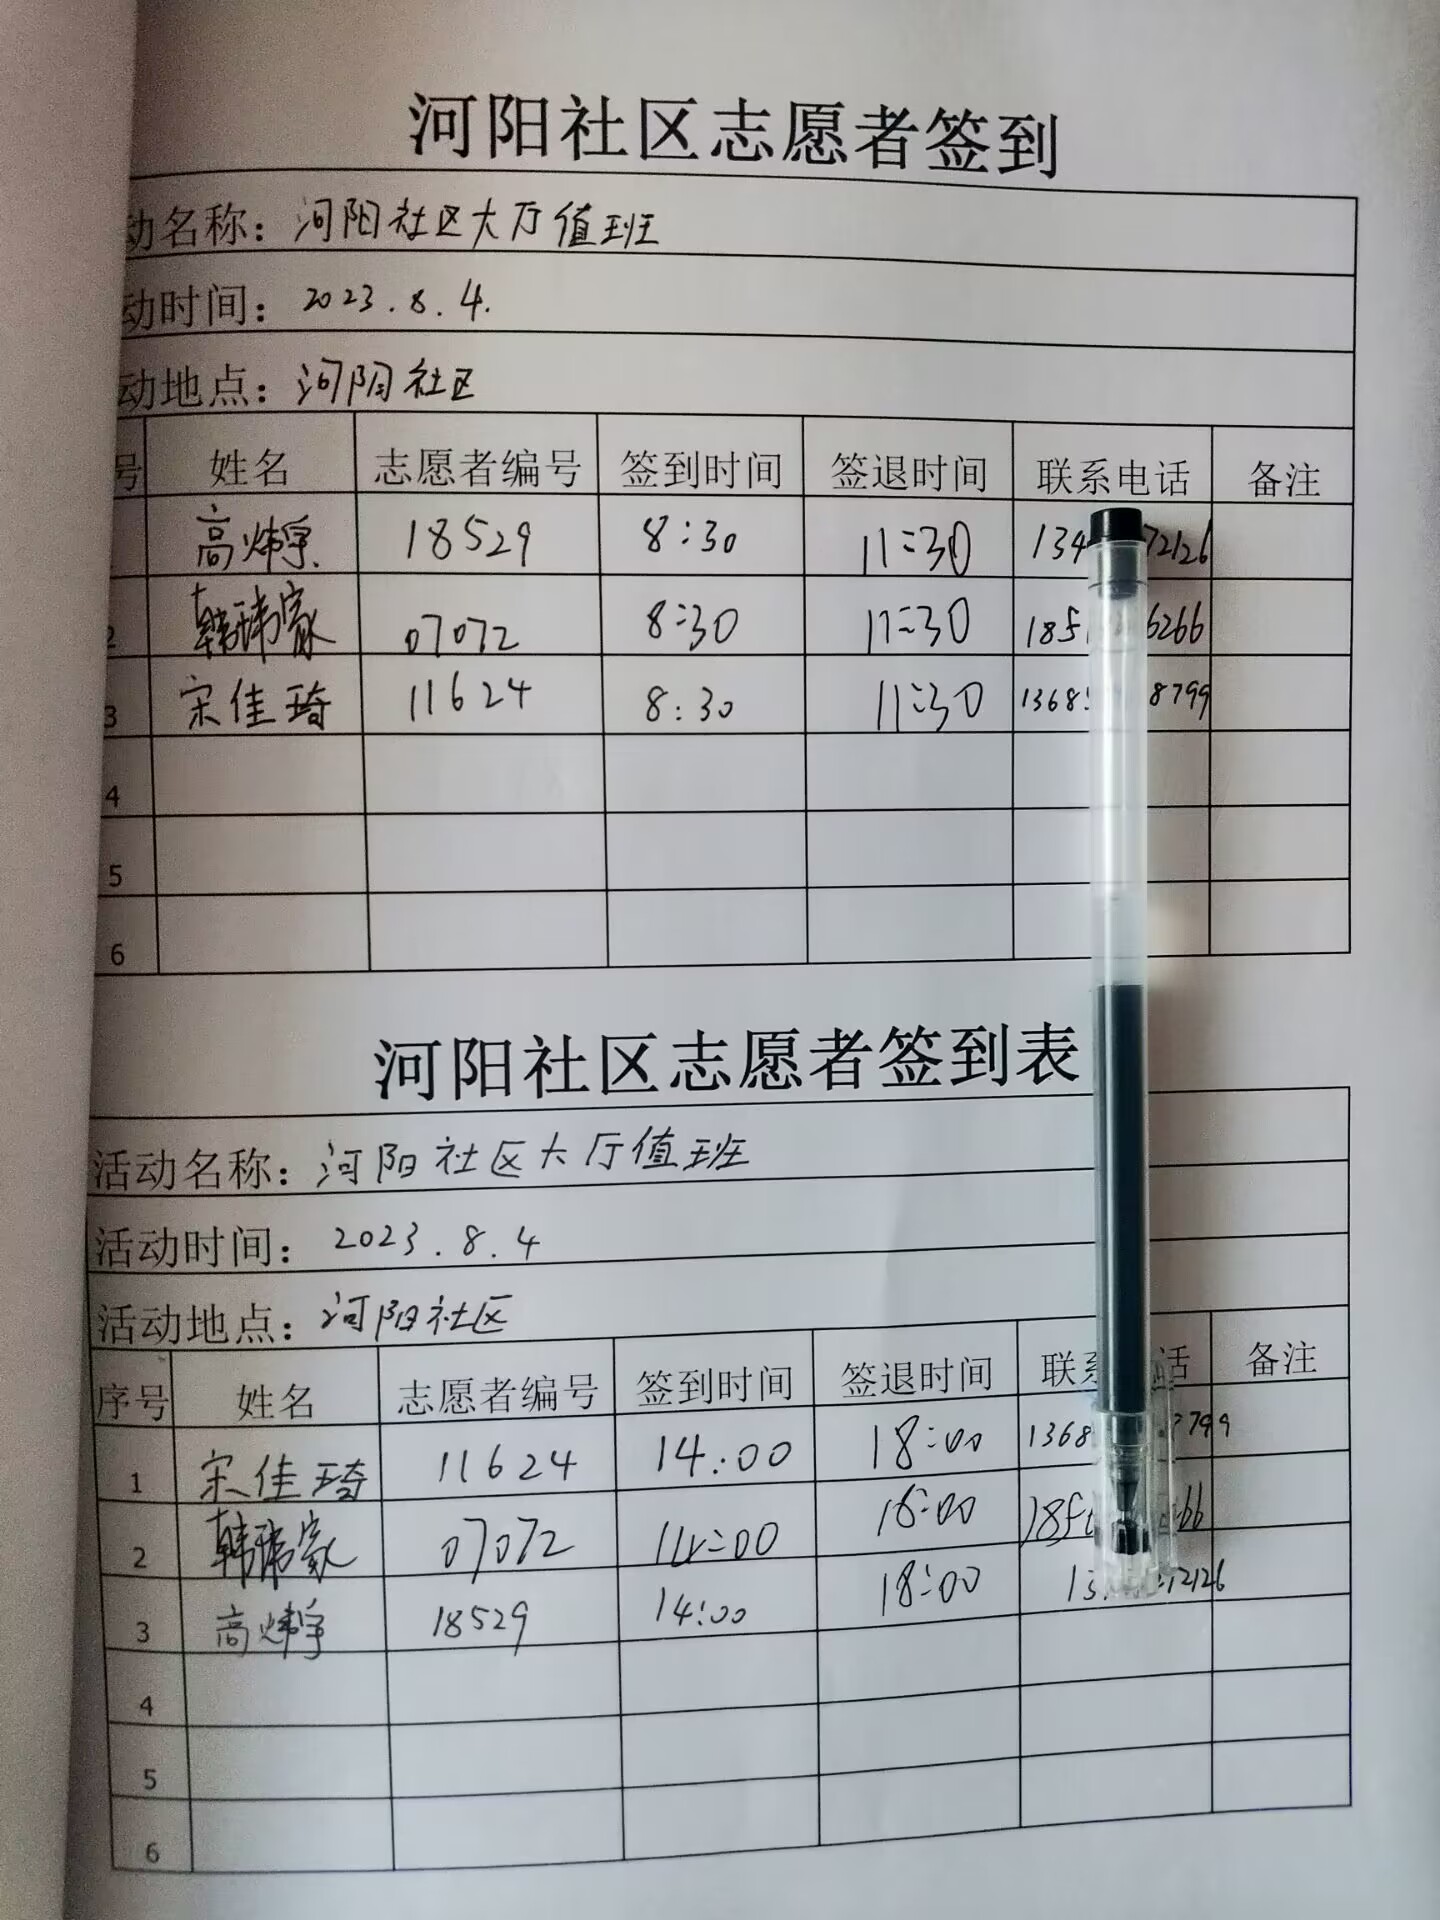 河阳社区志愿者签到
动名称：河阳社区大厅值班
动时间：2023.8.4.
动地点：河阳社区
号 姓名 志愿者编号 签到时间 签退时间 联系电话 备注
高炜宇 18529 8:30 11:30 134 72126
2 韩玮家 07072 8:30 11:30 185 6266
3 宋佳琦 11624 8:30 11:30 1368 8799
4
5
6
河阳社区志愿者签到表
活动名称：河阳社区大厅值班
活动时间：2023.8.4
活动地点：河阳社区
序号 姓名 志愿者编号 签到时间 签退时间 联系 话 备注
1 宋佳琦 11624 14:00 18:00 1368 799
2 韩玮家 07072 14:00 18:00 18 66
3 高炜宇 18529 14:00 18:00 13 2126
4
5
6